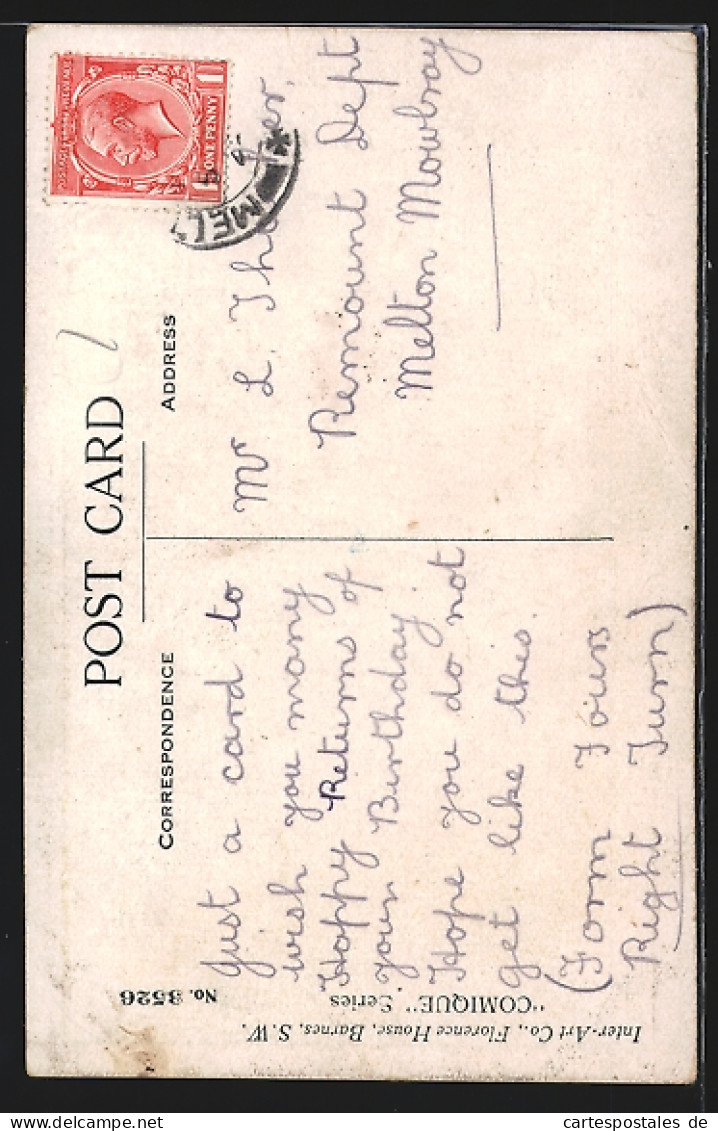 POST CARD
CORRESPONDENCE
ADDRESS
Just a card to
wish you many
Happy Returns of
your Birthday.
Hope you do not
get like this.
(Form Fours
Right Turn)
Mr L.
Remount Dept
Melton Mowbray
ONE PENNY
MELT
Inter-Art Co., Florence House, Barnes, S.W.
"COMIQUE" Series
No. 3526
cartespostales de